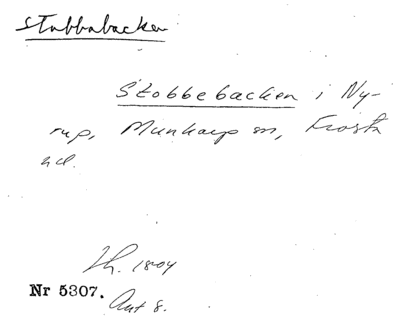 Stabbabacken
Stobbebacken i Ny-
rup, Munkarp sn, Frosta
hd.
Lh. 1804
Nr 5307.
Ant 8.